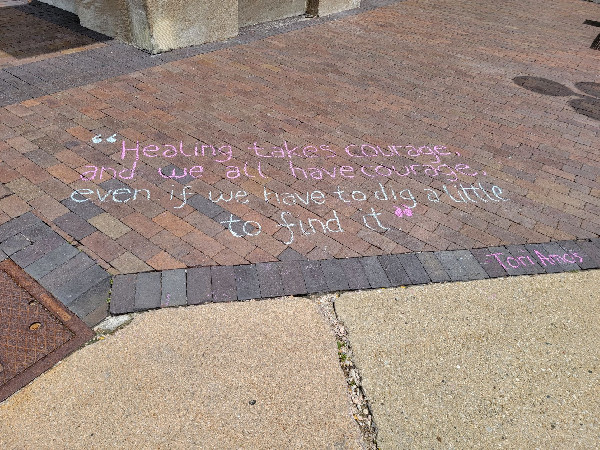 “Healing takes courage,
and we all have courage,
even if we have to dig a little
to find it.”
Tori Amos